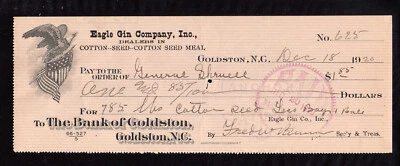 Eagle Gin Company, Inc.,
DEALERS IN
COTTON-SEED-COTTON SEED MEAL
No. 625
GOLDSTON, N.C. Dec 18 1920
PAY TO THE ORDER OF General $1.85
One and 85/100 DOLLARS
FOR 785 lbs Cotton Seed 1 Bale
To The Bank of Goldston,
Goldston, N.C.
66-527
Eagle Gin Co., Inc.
Sec'y & Treas.